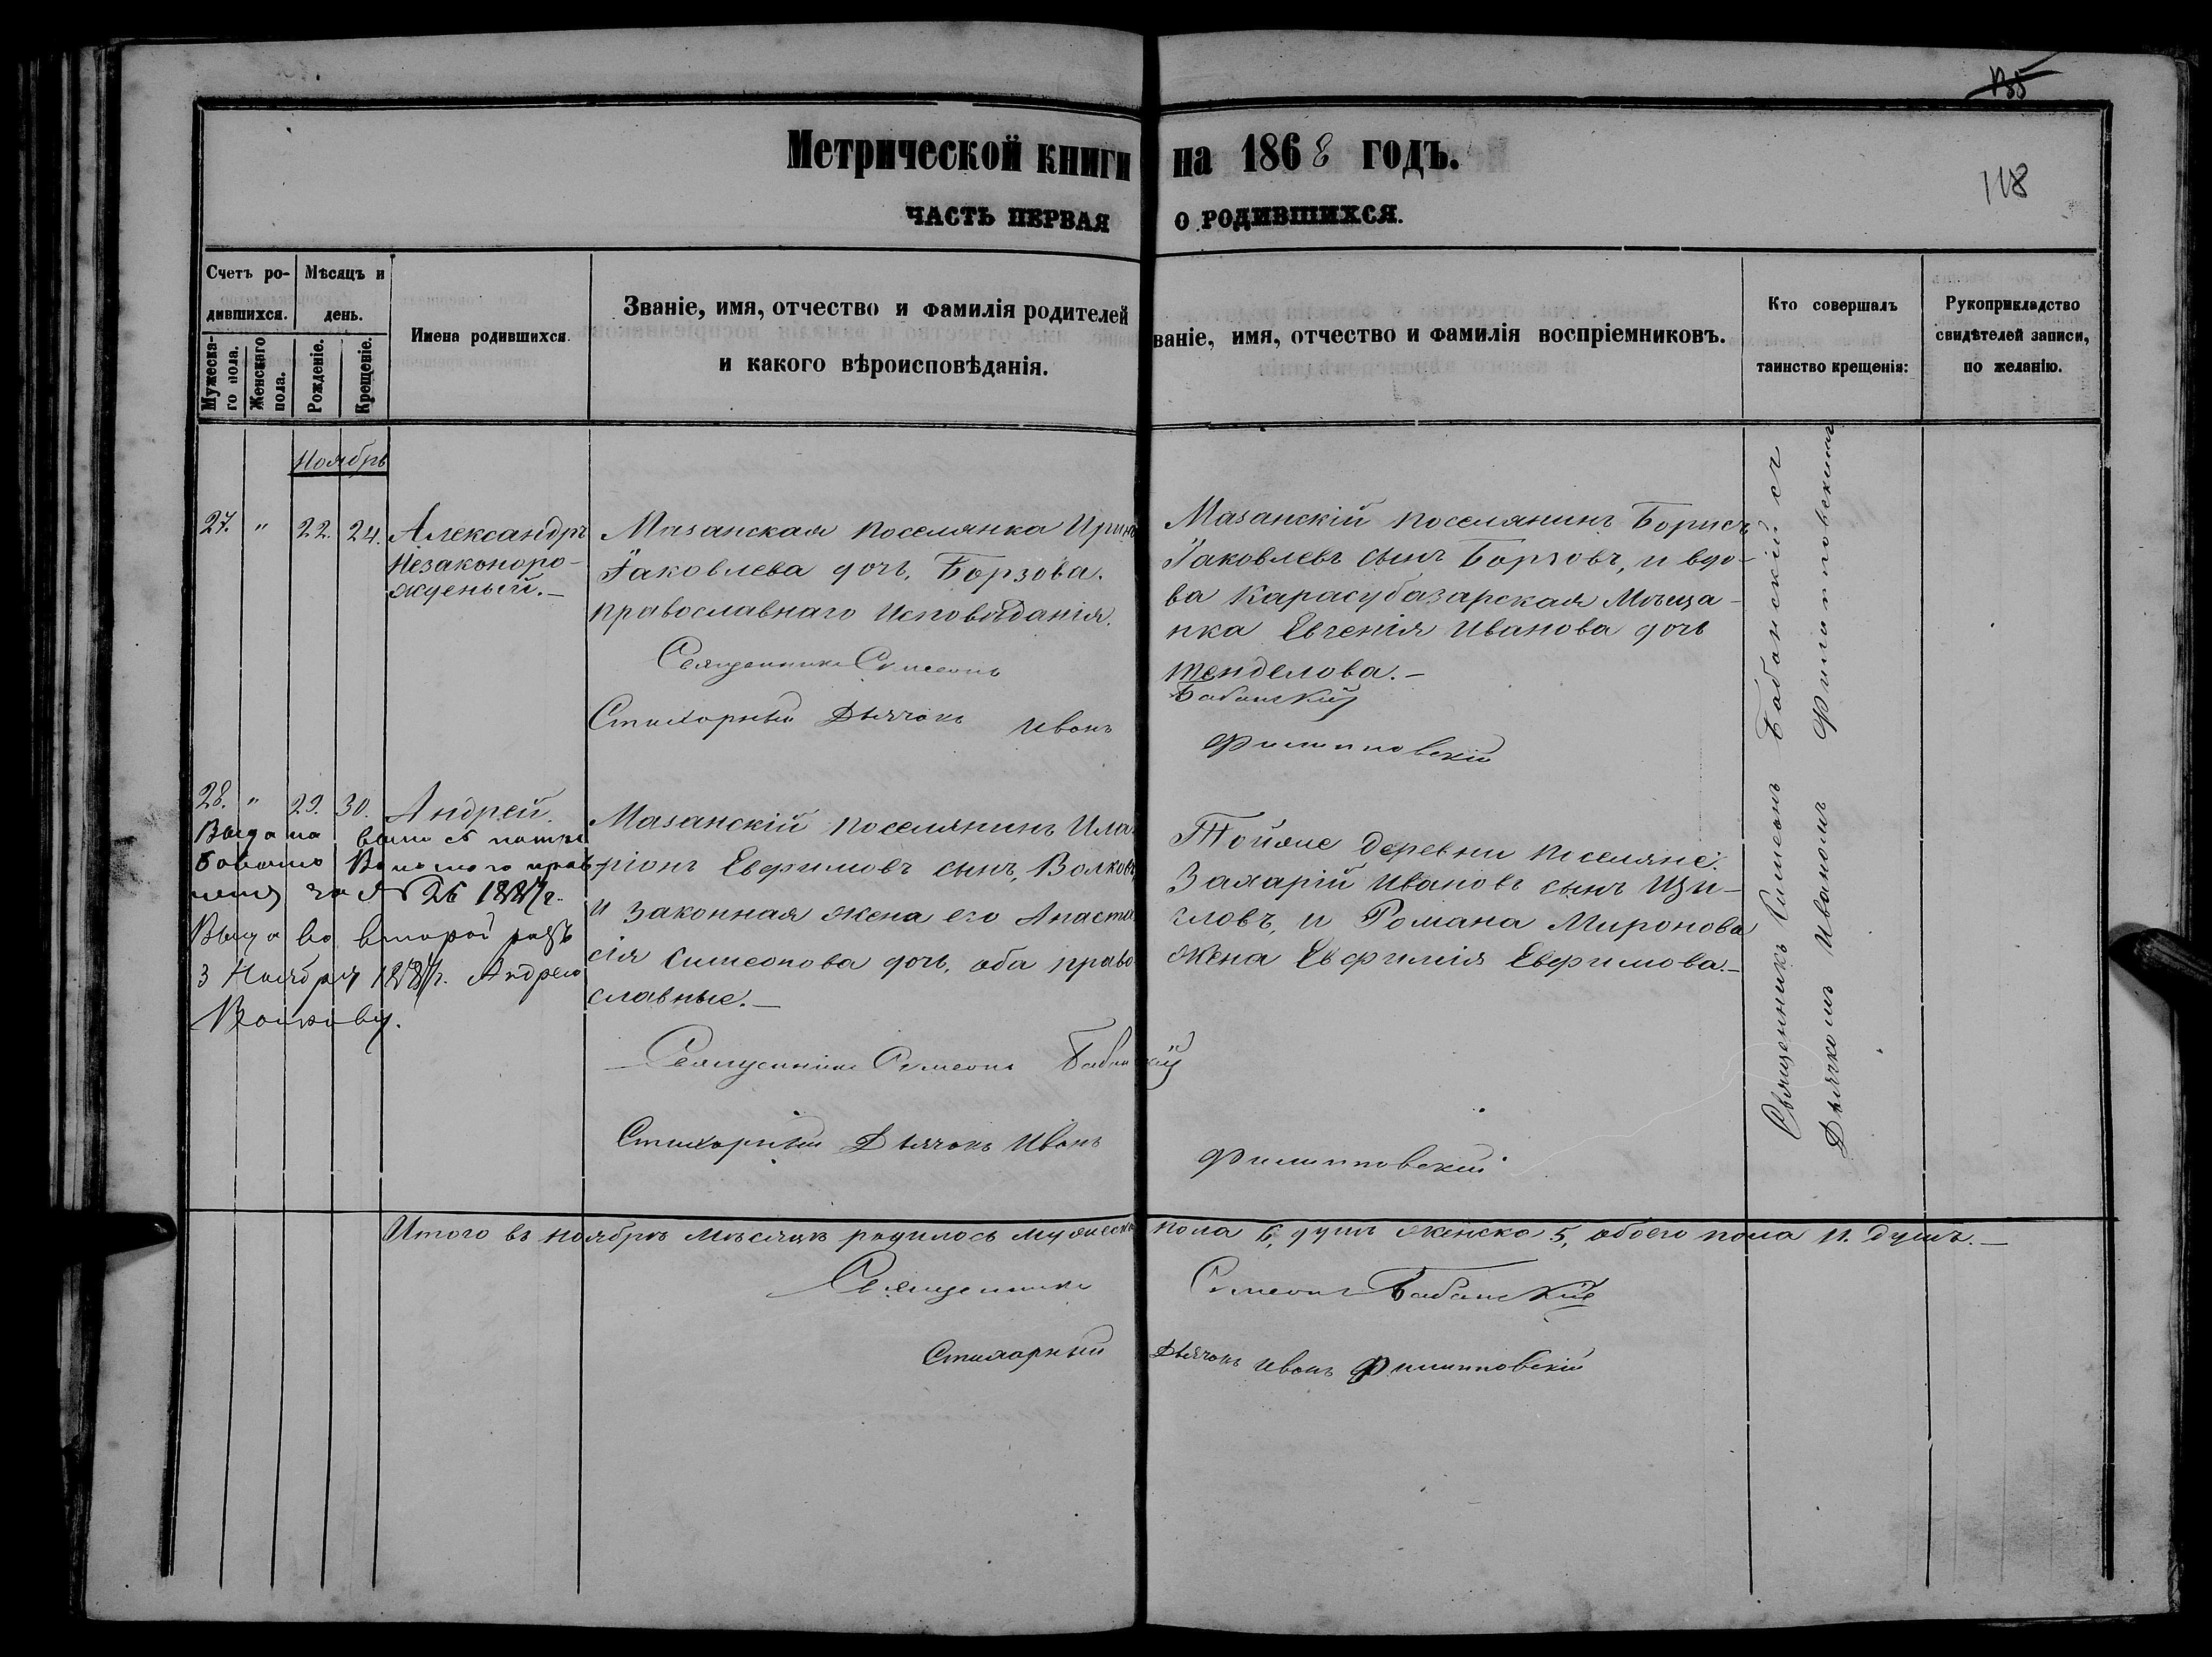 135
Метрической книги на 1868 годъ.
118
ЧАСТЬ ПЕРВАЯ О РОДИВШИХСЯ.
Счетъ ро-
дившихся.
Мужеска-
го пола.
Женскаго
пола.
Мѣсяцъ и
день.
Рожденіе.
Крещеніе.
Имена родившихся.
Званіе, имя, отчество и фамилія родителей
и какого вѣроисповѣданія.
званіе, имя, отчество и фамилія воспріемниковъ.
Кто совершалъ
таинство крещенія:
Рукоприкладство
свидѣтелей записи,
по желанію.
Ноябрь
27. " 22. 24. Александръ
Незаконоро-
жденый.-
Мазанская поселянка Ирина
Іаковлева дочь, Борзова.
православнаго исповѣданія.
Священникъ Симеонъ
Стихарный Дьячокъ Иванъ
Мазанскій поселянинъ Борисъ
Іаковлевъ сынъ Борзовъ, и вдо-
ва Карасубазарская Мѣща-
нка Евгенія Иванова дочь
Тенделова.-
Бабанскій
Филипповскій
28. " 29. 30. Андрей.
за № 26 1887г.
Выда во второй разъ
3 Ноября 1887г. Андрею
Волкову.
Мазанскій поселянинъ Ила
ріонъ Евфимовъ сынъ, Волковъ,
и законная жена его Анаста
сія Симеонова дочь, оба право
славные.-
Священникъ Симеонъ Бабанскій
Стихарный Дьячокъ Иванъ
Тойже деревни поселяне:
Захарій Ивановъ сынъ Щи-
гловъ, и Романа Миронова
жена Евфимія Евфимова.-
Филипповскій
Священникъ Симеонъ Бабанскій съ
Дьячкомъ Иваномъ Филипповскимъ
Итого въ ноябрѣ мѣсяцѣ родилось мужеска пола 6, душъ женска 5, обоего пола 11. душъ.-
Священникъ Симеонъ Бабанскій
Стихарный Дьячокъ Иванъ Филипповскій